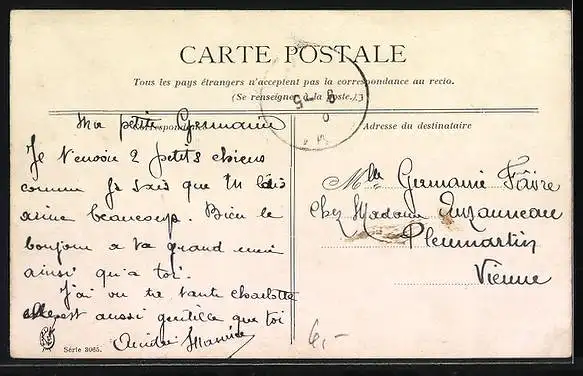 CARTE POSTALE
Tous les pays étrangers n'acceptent pas la correspondance au recto.
(Se renseigner à la poste.)
Correspondance
Adresse du destinataire
Ma petite Germaine
Je t'envoie 2 petits chiens
comme je sais que tu les
aime beaucoup. Bien le
bonjour a ta grand mère
ainsi qu'a toi.
J'ai vu ta tante Charlotte
elle est aussi gentille que toi
André Maurice
Mlle Germaine Faivre
Chez Madame
Pleumartin
Vienne
Série 3065.
4,-